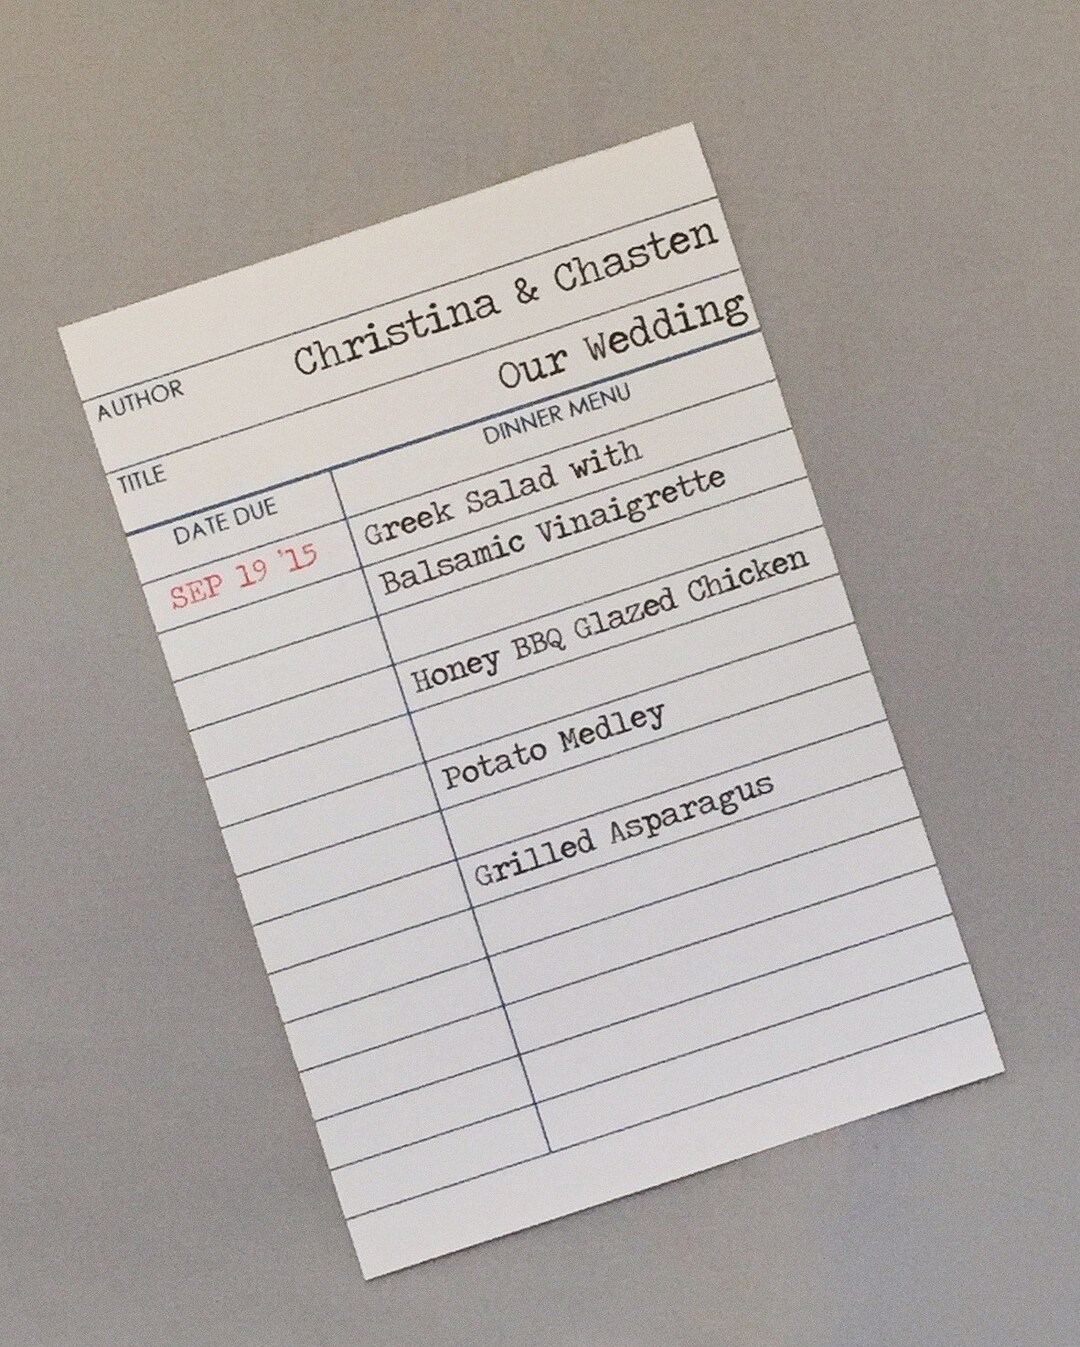 AUTHOR Christina & Chasten
TITLE Our Wedding
DATE DUE DINNER MENU
SEP 19 '15 Greek Salad with
Balsamic Vinaigrette
Honey BBQ Glazed Chicken
Potato Medley
Grilled Asparagus